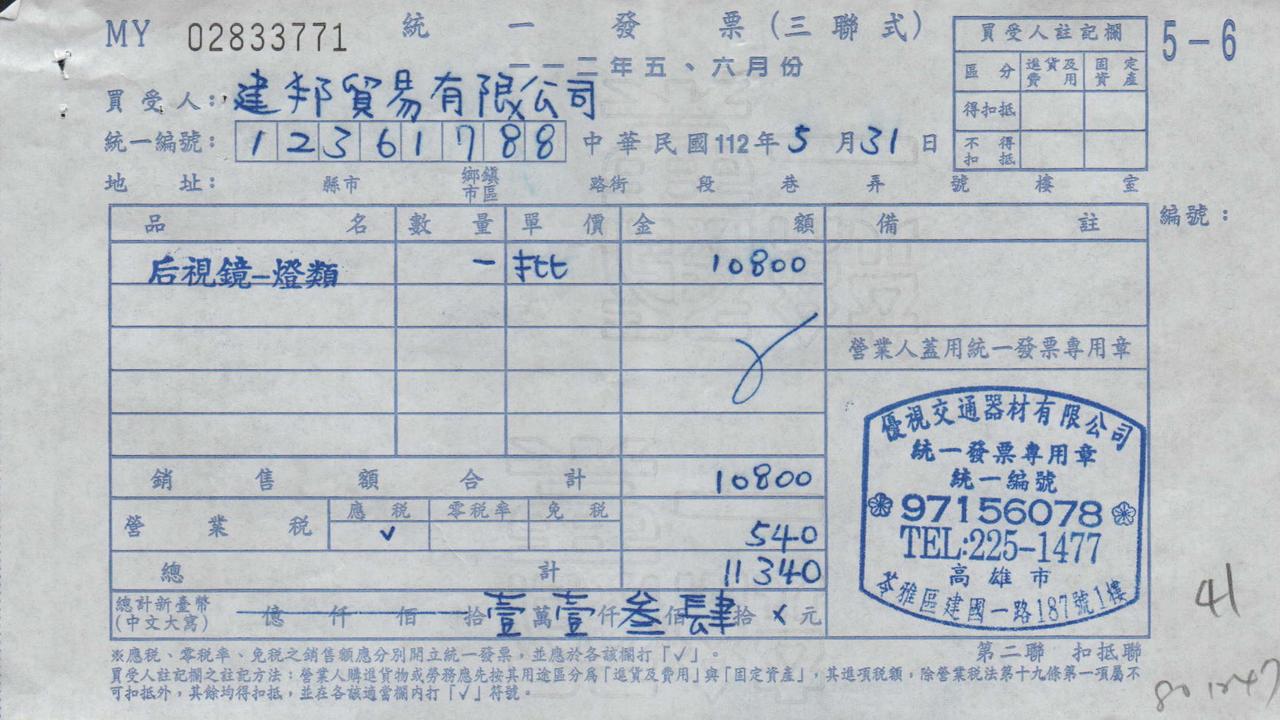 MY 02833771 統一發票(三聯式)
一一二年五、六月份
5-6
買受人註記欄
區分 進貨及費用 固定資產
得扣抵
不得扣抵
買受人:建邦貿易有限公司
統一編號:12361788 中華民國112年5月31日
地址: 縣市 鄉鎮市區 路街 段 巷 弄 號 樓 室
編號:
品名 數量 單價 金額 備註
后視鏡-燈類 一 批 10800
營業人蓋用統一發票專用章
銷售額合計 10800
營業稅 應稅 零稅率 免稅
✓ 540
總計 11340
總計新臺幣(中文大寫) 億 仟 佰 拾壹萬壹仟叁佰肆拾x元
優視交通器材有限公司
統一發票專用章
統一編號
97156078
TEL:225-1477
高雄市
苓雅區建國一路187號1樓
41
第二聯 扣抵聯
※應稅、零稅率、免稅之銷售額應分別開立統一發票,並應於各該欄打「✓」。
買受人註記欄之註記方法:營業人購進貨物或勞務應先按其用途區分為「進貨及費用」與「固定資產」,其進項稅額,除營業稅法第十九條第一項屬不
可扣抵外,其餘均得扣抵,並在各該適當欄內打「✓」符號。